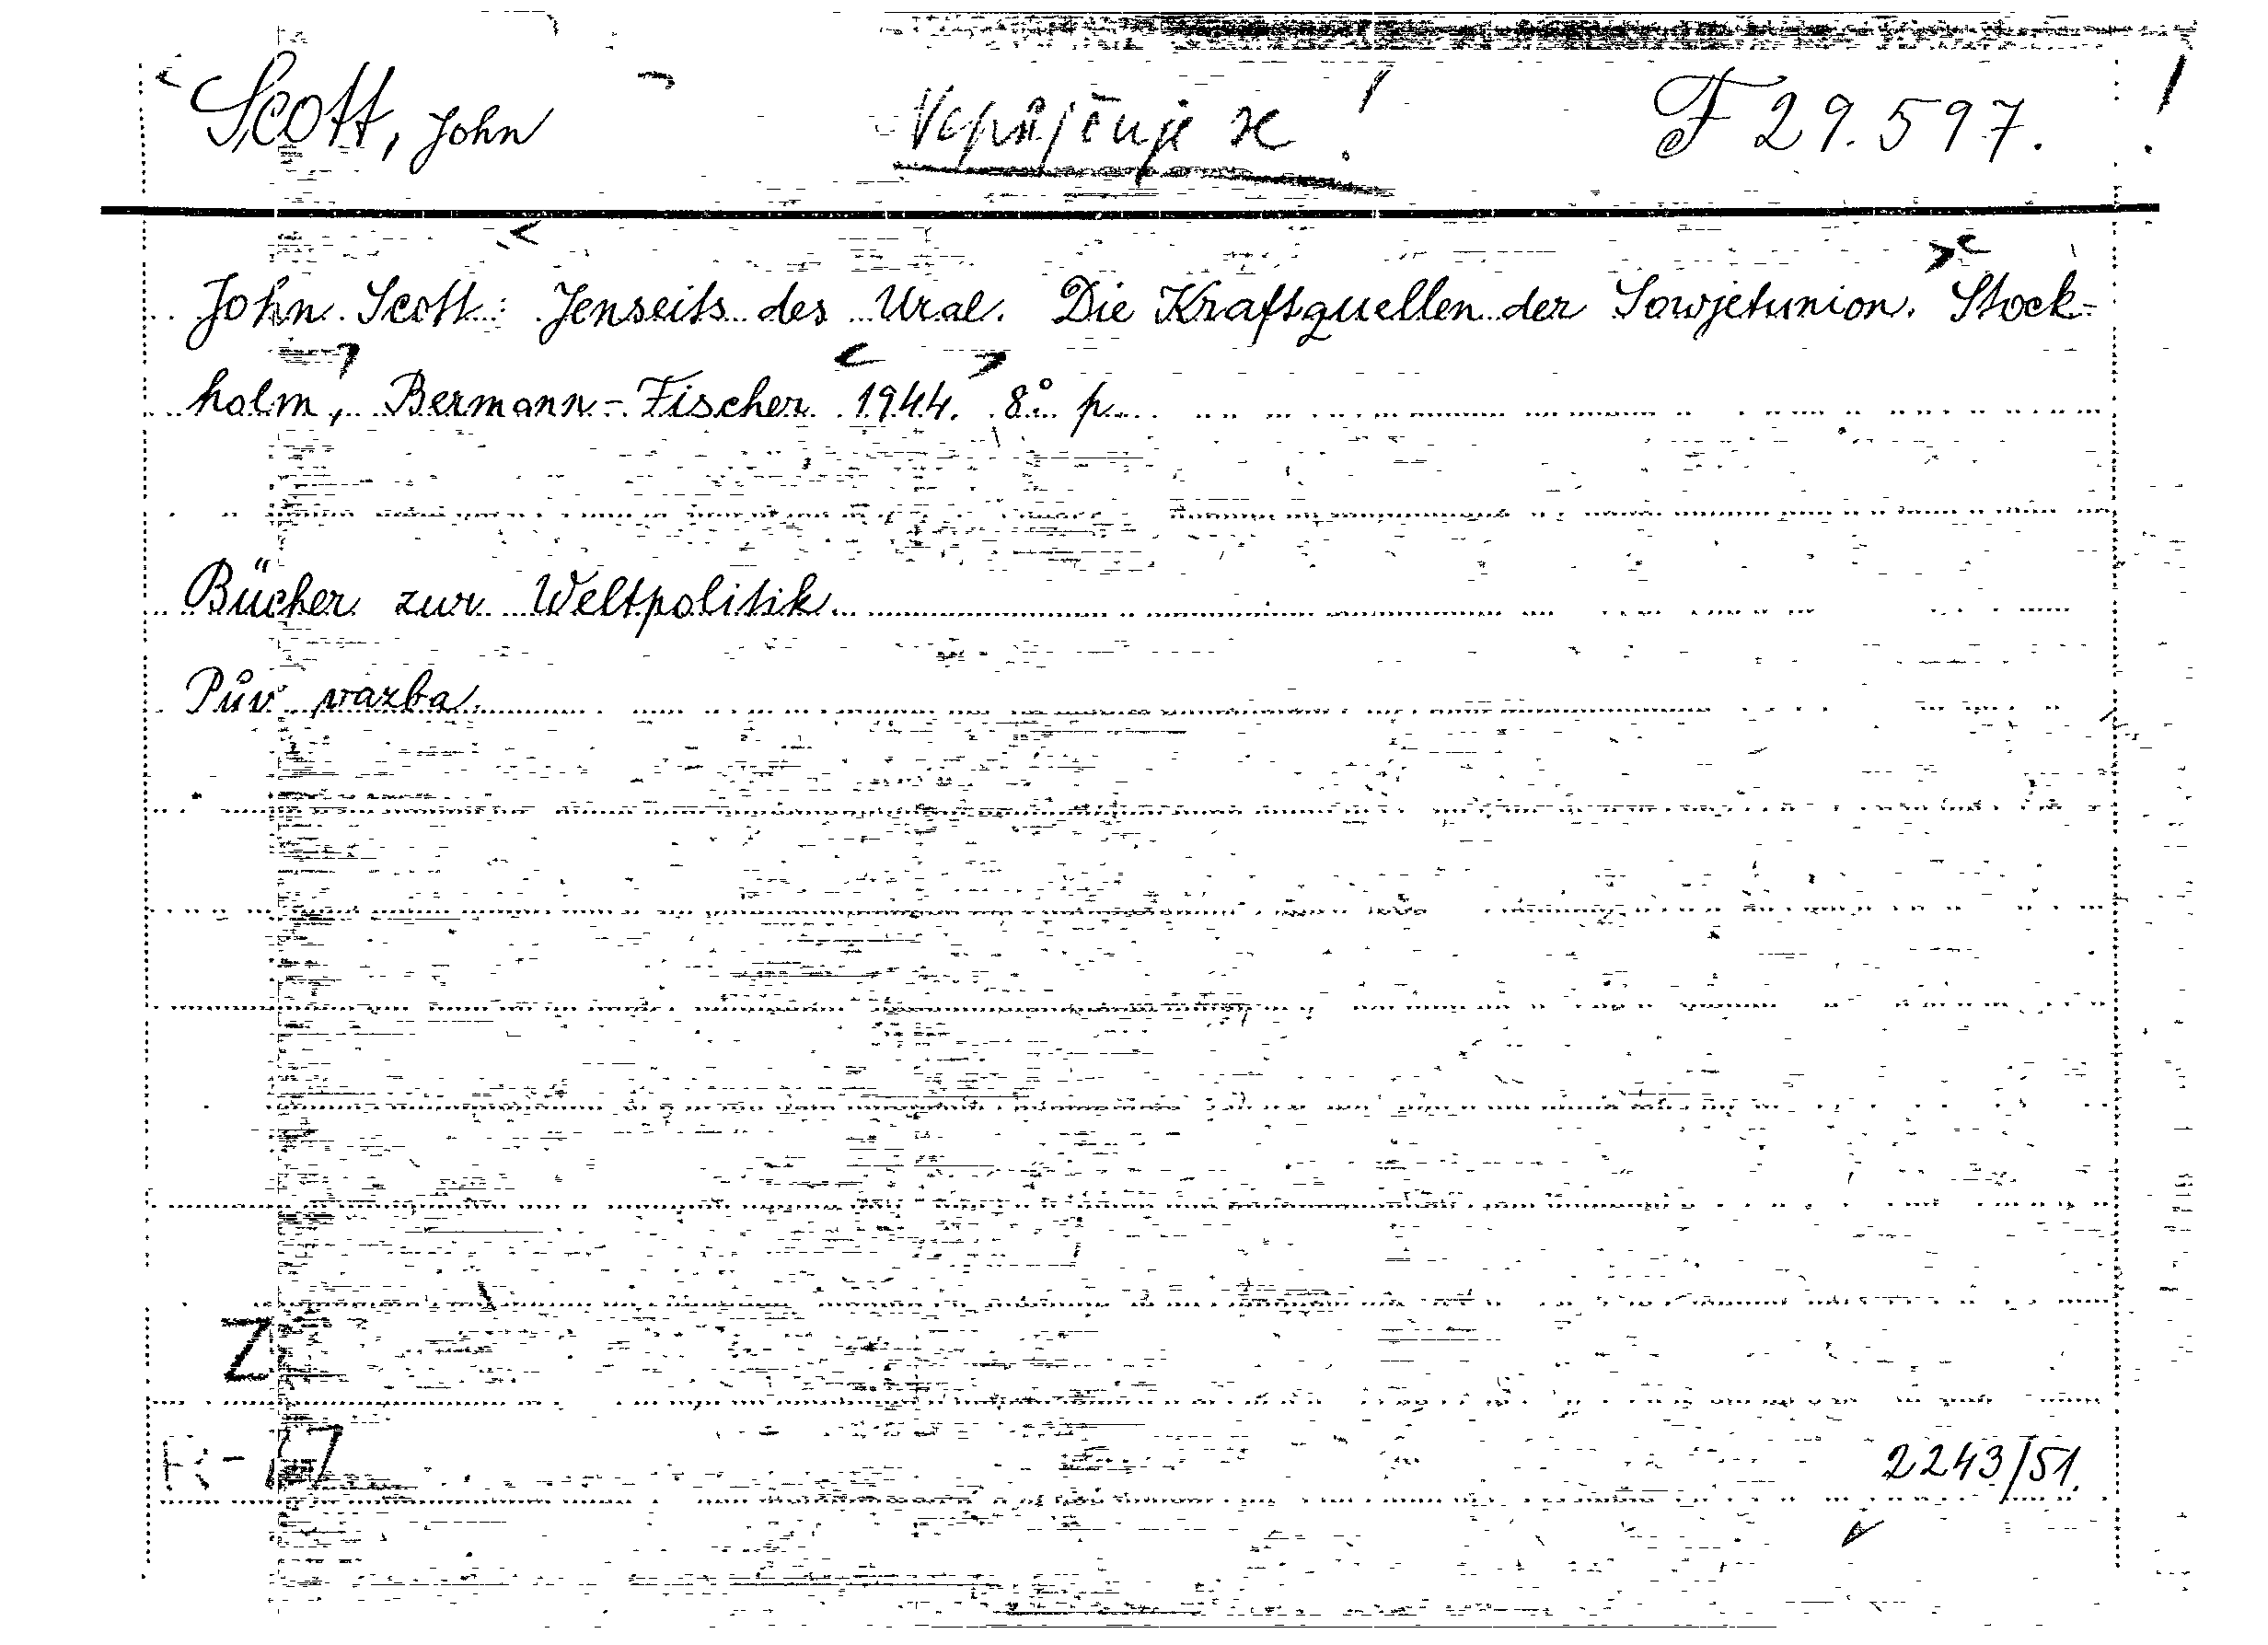 Scott, John Nepůjčuje se! F 29.597. !
John Scott: Jenseits des Ural. Die Kraftquellen der Sowjetunion. Stock-
holm, Bermann-Fischer 1944. 8° p.
Bücher zur Weltpolitik.
Pův. vazba.
Z
2243/51.